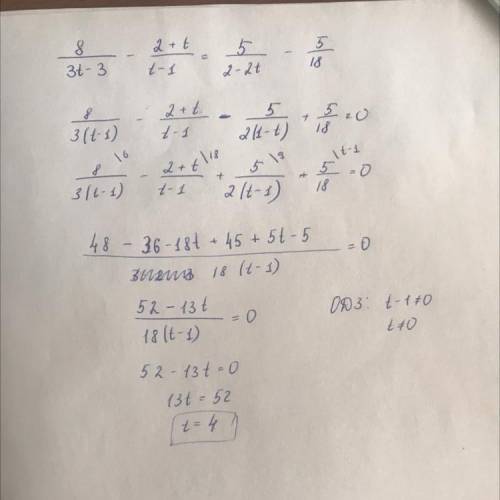 8/(3t-3) - (2+t)/(t-1) = 5/(2-2t) - 5/18
8/(3(t-1)) - (2+t)/(t-1) - 5/(2(1-t)) + 5/18 = 0
8\6/(3(t-1)) - (2+t\18)/(t-1) + 5\9/(2(t-1)) + 5\t-1/18 = 0
(48 - 36 - 18t + 45 + 5t - 5)/(18(t-1)) = 0
(52 - 13t)/(18(t-1)) = 0
ОДЗ: t-1≠0
t≠0
52 - 13t = 0
13t = 52
t = 4